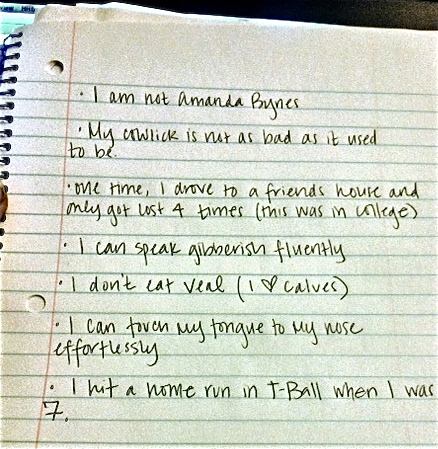 · I am not Amanda Bynes
· My cowlick is not as bad as it used
to be.
· one time, I drove to a friends house and
only got lost 4 times (this was in college)
· I can speak gibberish fluently
· I don't eat veal (I ♡ calves)
· I can touch my tongue to my nose
effortlessly
· I hit a home run in T-Ball when I was
7.